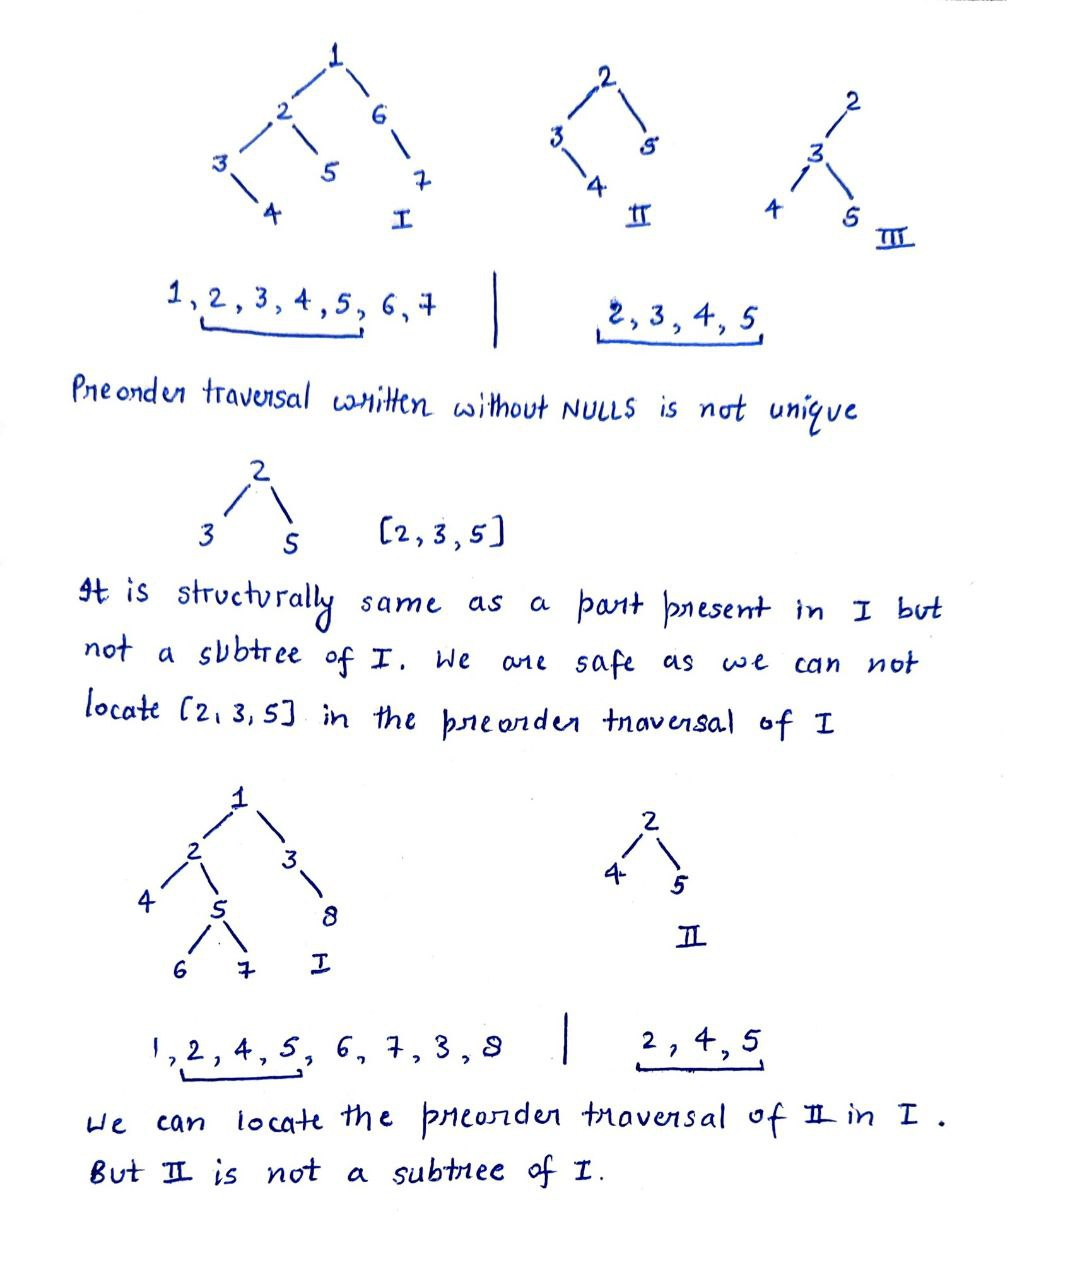 1
2 6
3 5 7
4 I
2
3 5
4 II
2
3
4 5
III
1, 2, 3, 4, 5, 6, 7 | 2, 3, 4, 5,
Preorder traversal written without NULLS is not unique
2
3 5 [2, 3, 5]
It is structurally same as a part present in I but
not a subtree of I. We are safe as we can not
locate [2, 3, 5] in the preorder traversal of I
1
2 3
4 5 8
6 7 I
2
4 5
II
1, 2, 4, 5, 6, 7, 3, 8 | 2, 4, 5
We can locate the preorder traversal of II in I.
But II is not a subtree of I.